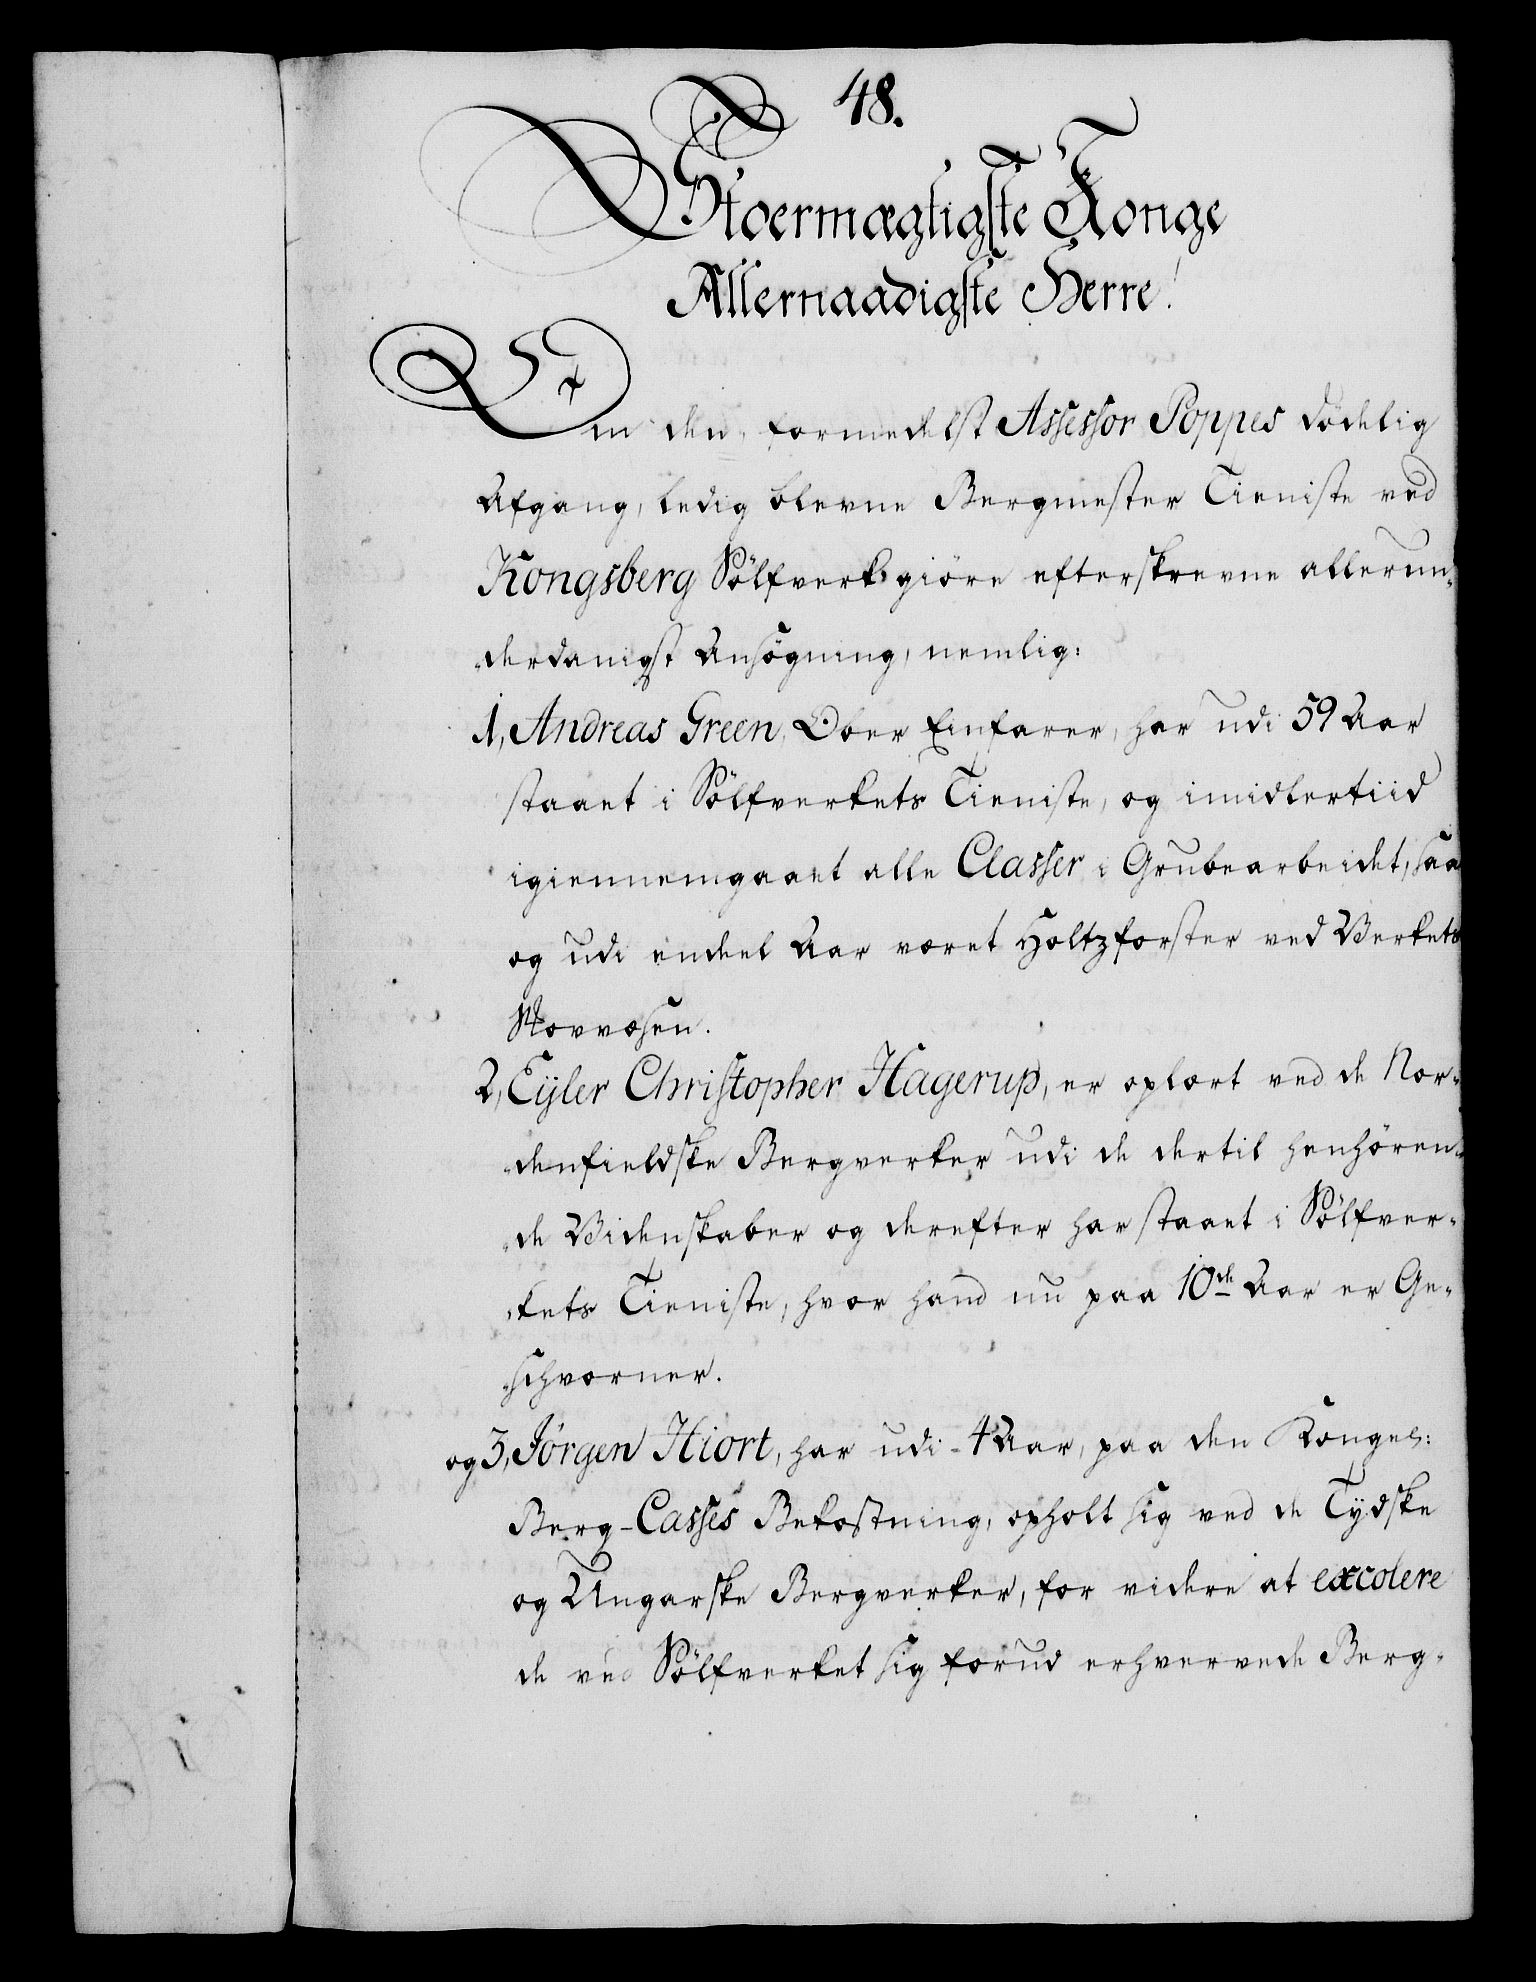 48.
Stoermægtigste Konge
Allernaadigste Herre!
Om den, formedelst Assessor Poppes dödelig
Afgang, ledig blevne Bergmester Tieniste ved
Kongsberg Sölfverk giöre efterskrevne allerun-
derdanigst Ansögning, nemlig:
1, Andreas Green, Ober Einfarer, har udi 59 Aar
staaet i Sölfverkets Tieniste, og imidlertiid
igiennemgaaet alle Classer i Grubearbeidet, saa
og udi endeel Aar været Holtzforster ved Verkets
Skovvæsen.
2, Eyler Christopher Hagerup, er oplært ved de Nor-
denfieldske Bergverker udi de dertil henhören-
de Videnskaber og derefter har staaet i Sölfver-
kets Tieniste, hvor hand nu paa 10de Aar er Ge-
schvorner.
og 3, Jörgen Hiort, har udi 4 Aar, paa den Kongel:
Berg-Casses Bekostning, opholt sig ved de Tydske
og Ungarske Bergverker, for videre at excolere
de ved Sölfverket sig forud erhvervede Berg-